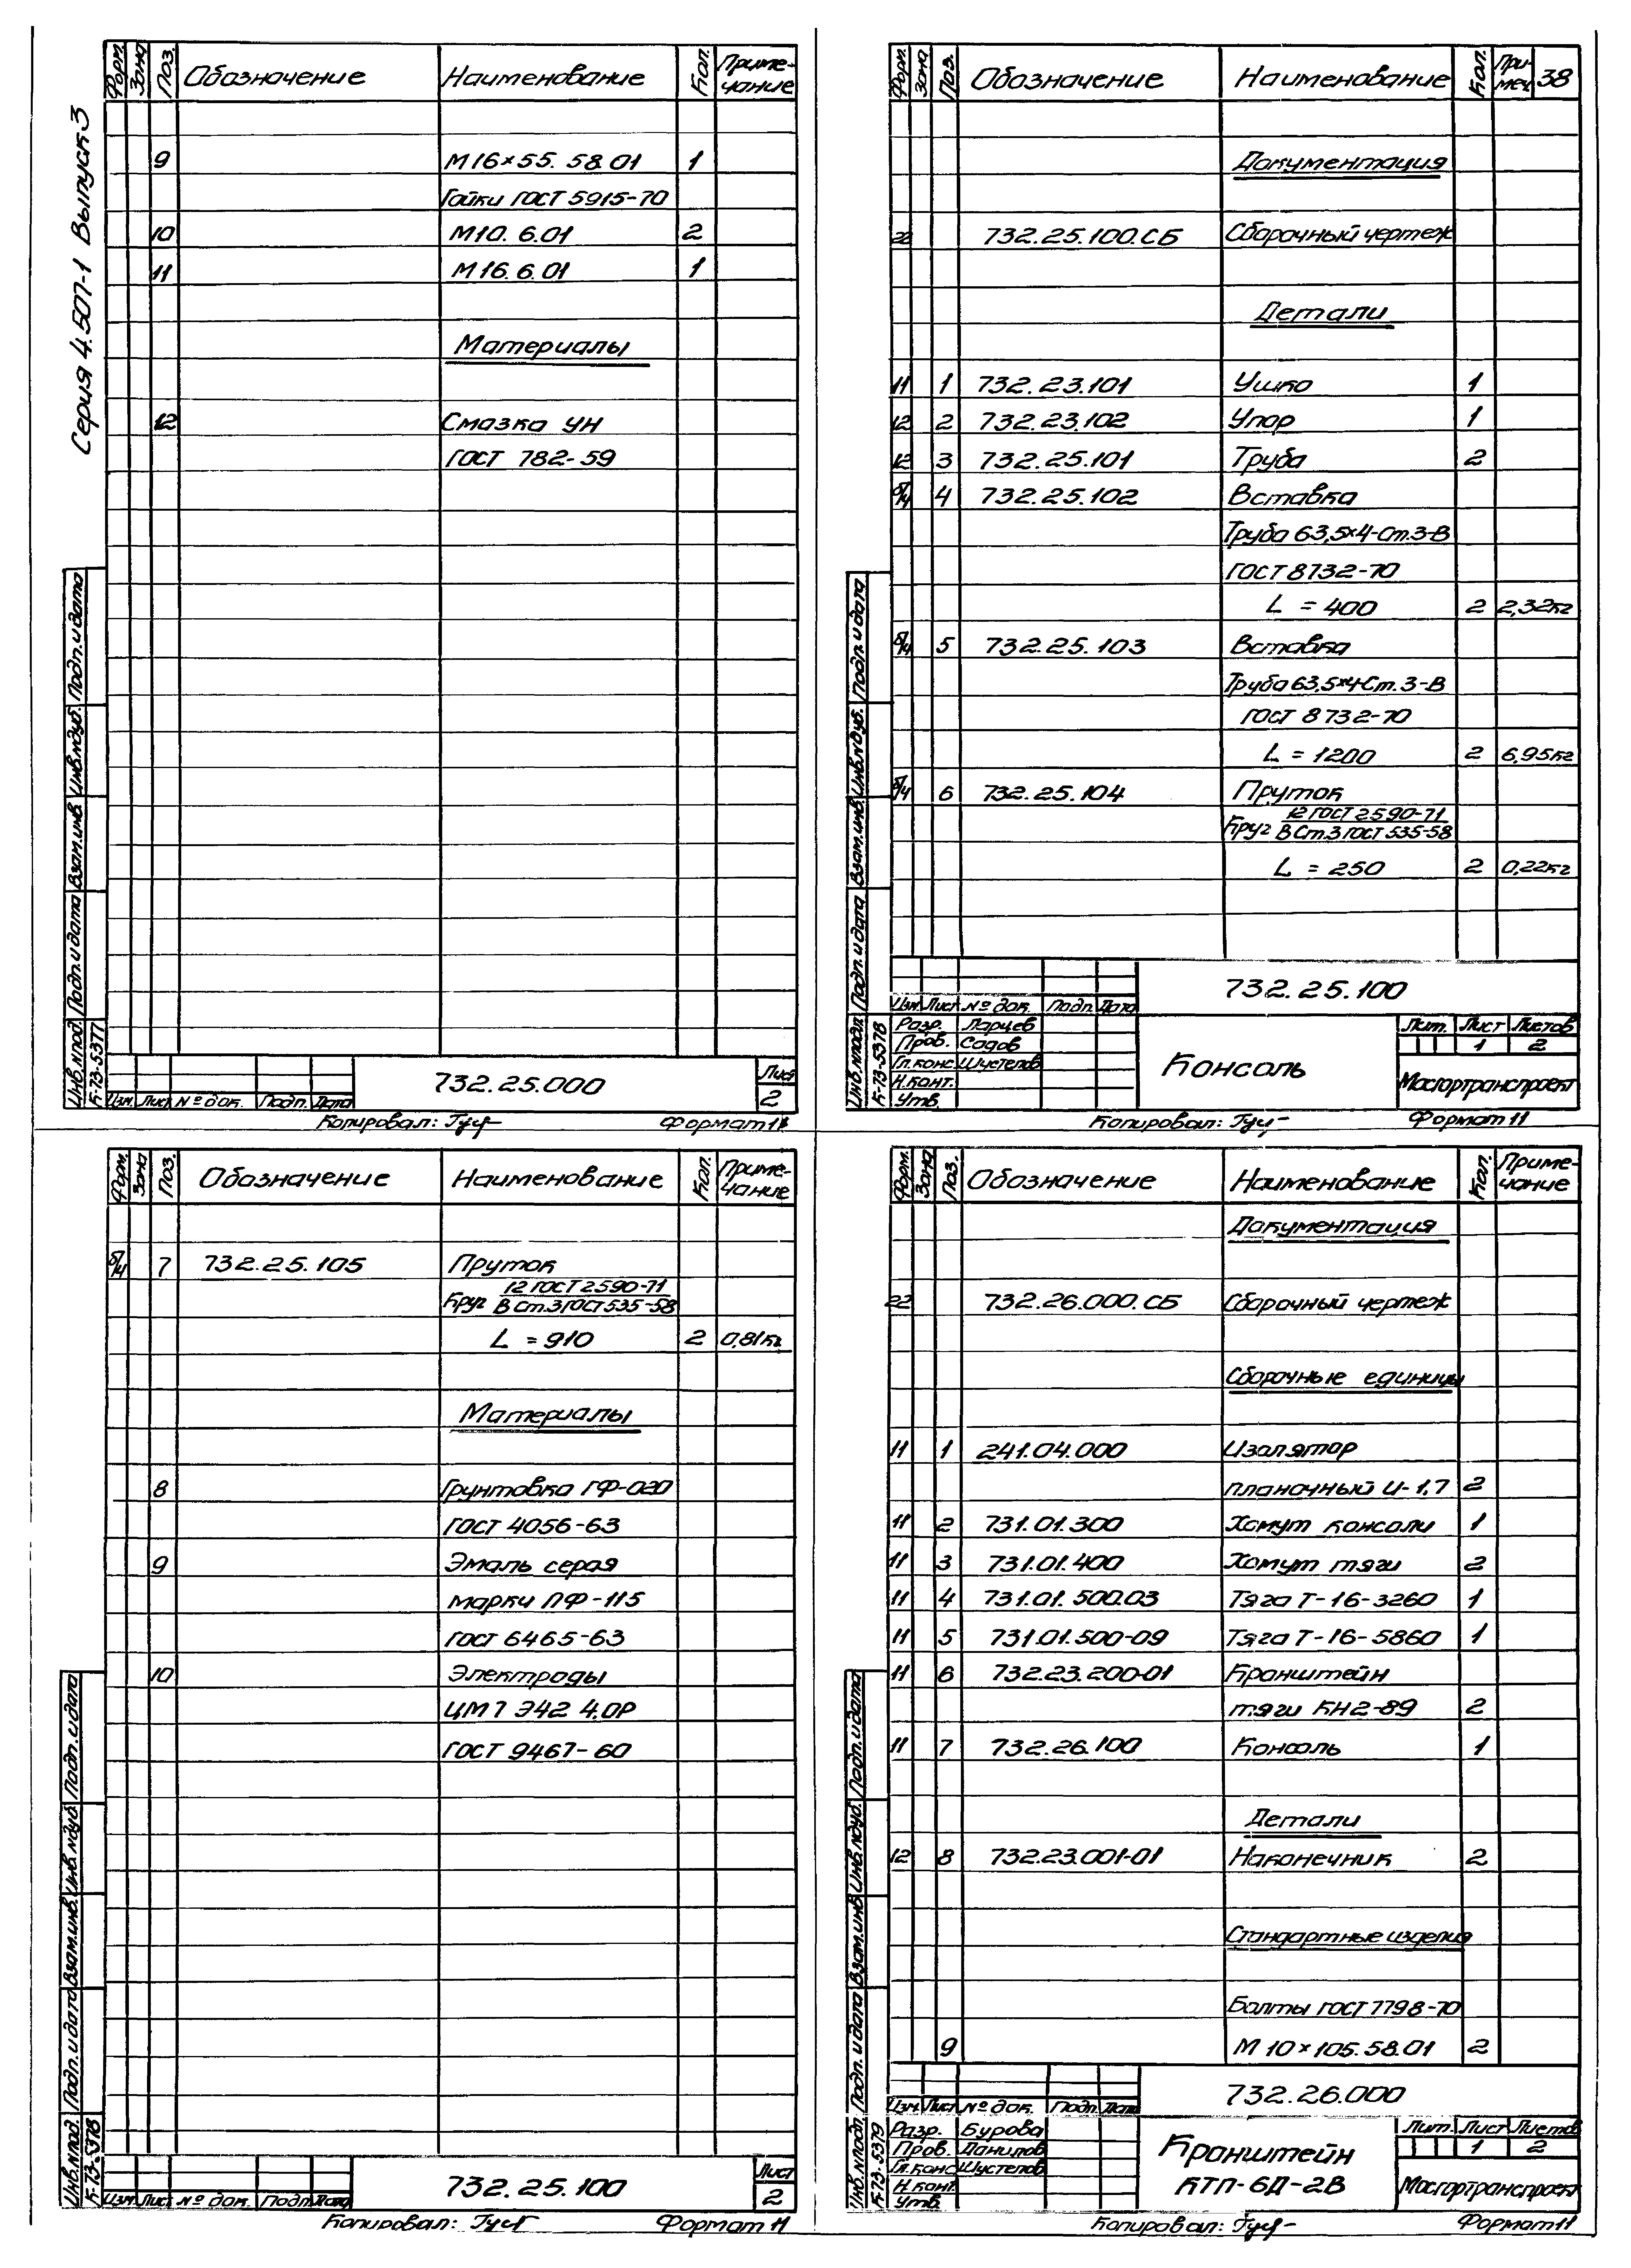 Серия 4.507-1 Выпуск 3
Форм. Зона Поз. Обозначение Наименование Кол. Приме-
чание
9 М16×55. 58.01 1
Гайки ГОСТ 5915-70
10 М10. 6.01 2
11 М16. 6.01 1
Материалы
12 Смазка УН
ГОСТ 782-59
Инв.№подл. Подп. и дата Взам.инв. Инв.№дуб. Подп. и дата
К-73-5377
Изм. Лист № док. Подп. Дата
732.25.000
Лист
2
Копировал: Формат 11
Форм. Зона Поз. Обозначение Наименование Кол. При-
меч. 38
Документация
22 732.25.100.СБ Сборочный чертеж
Детали
11 1 732.23.101 Ушко 1
12 2 732.23.102 Упор 1
12 3 732.25.101 Труба 2
б/ч 4 732.25.102 Вставка
Труба 63,5×4-Ст.3-В
ГОСТ 8732-70
L = 400 2 2,32кг
б/ч 5 732.25.103 Вставка
Труба 63,5×4-Ст.3-В
ГОСТ 8732-70
L = 1200 2 6,95кг
б/ч 6 732.25.104 Пруток
12 ГОСТ 2590-71
Круг В Ст.3 ГОСТ 535-58
L = 250 2 0,22кг
Инв.№подл. Подп. и дата Взам.инв. Инв.№дуб. Подп. и дата
К-73-5378
732.25.100
Изм. Лист № док. Подп. Дата
Разр. Ларцев
Пров. Садов
Гл.конс. Шустелов
Н.конт.
Утв.
Консоль
Лит. Лист Листов
1 2
Мосгортранспроект
Копировал: Формат 11
Форм. Зона Поз. Обозначение Наименование Кол. Приме-
чание
б/ч 7 732.25.105 Пруток
12 ГОСТ 2590-71
Круг В Ст.3 ГОСТ 535-58
L = 910 2 0,81кг
Материалы
8 Грунтовка ГФ-020
ГОСТ 4056-63
9 Эмаль серая
марки ПФ-115
ГОСТ 6465-63
10 Электроды
ЦМ7 Э42 4.0Р
ГОСТ 9467-60
Инв.№подл. Подп. и дата Взам.инв. Инв.№дуб. Подп. и дата
К-73-5378
Изм. Лист № док. Подп. Дата
732.25.100
Лист
2
Копировал: Формат 11
Форм. Зона Поз. Обозначение Наименование Кол. Приме-
чание
Документация
22 732.26.000.СБ Сборочный чертеж
Сборочные единицы
11 1 241.04.000 Изолятор
планочный И-1,7 2
11 2 731.01.300 Хомут консоли 1
11 3 731.01.400 Хомут тяги 2
11 4 731.01.500.03 Тяга Т-16-3260 1
11 5 731.01.500-09 Тяга Т-16-5860 1
11 6 732.23.200-01 Кронштейн
тяги КН2-89 2
11 7 732.26.100 Консоль 1
Детали
12 8 732.23.001-01 Наконечник 2
Стандартные изделия
Болты ГОСТ 7798-70
9 М 10×105.58.01 2
Инв.№подл. Подп. и дата Взам.инв Инв.№дуб. Подп. и дата
К-73-5379
732.26.000
Изм. Лист № док. Подп. Дата
Разр. Бурова
Пров. Данилов
Гл.конс Шустелов
Н.конт.
Утв.
Кронштейн
КТП-6Д-2В
Лит. Лист Листов
1 2
Мосгортранспроект
Копировал: Формат 11